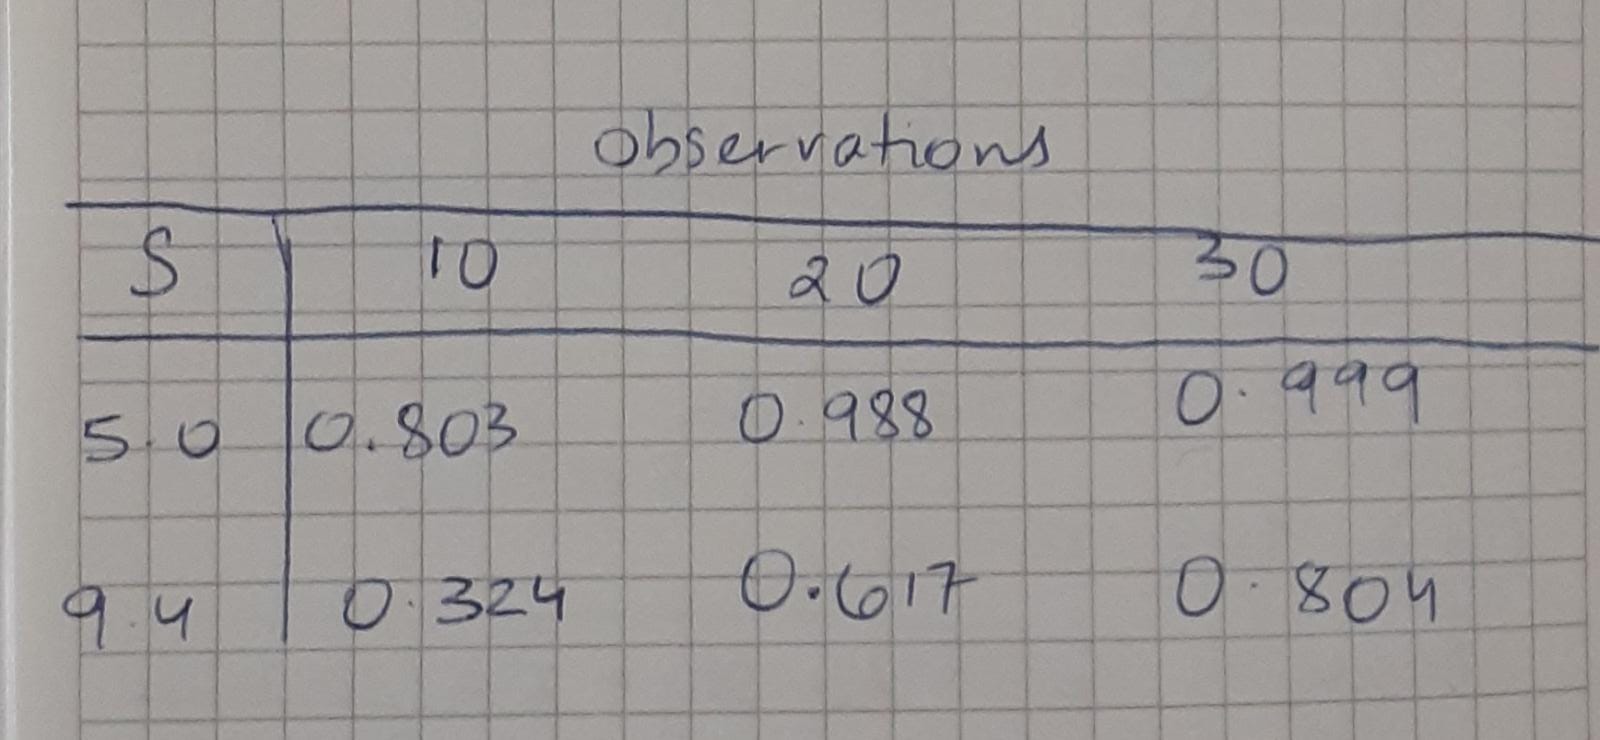 Observations
S 10 20 30
5.0 0.803 0.988 0.999
9.4 0.324 0.617 0.804